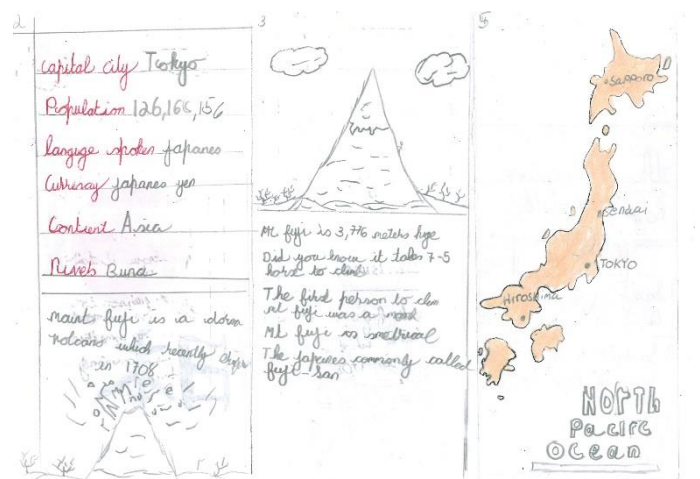 2
capital city Tokyo
Population 126,168,156
languge spoken japanes
Currenay japanes yen
Contient Asia
Rivers
maint fuji is a dorm
volcano which recently
in 1708
3
Mt fuji is 3,776 meters hige
Did you know it takes 7-5
horz to climb
The first person to clim
mt fuji was a
Mt fuji is smetrical
The japanes commonly called
fuji-san
5
Sapporo
Sendai
TOKYO
Hiroshima
NORTH
Pacific
Ocean